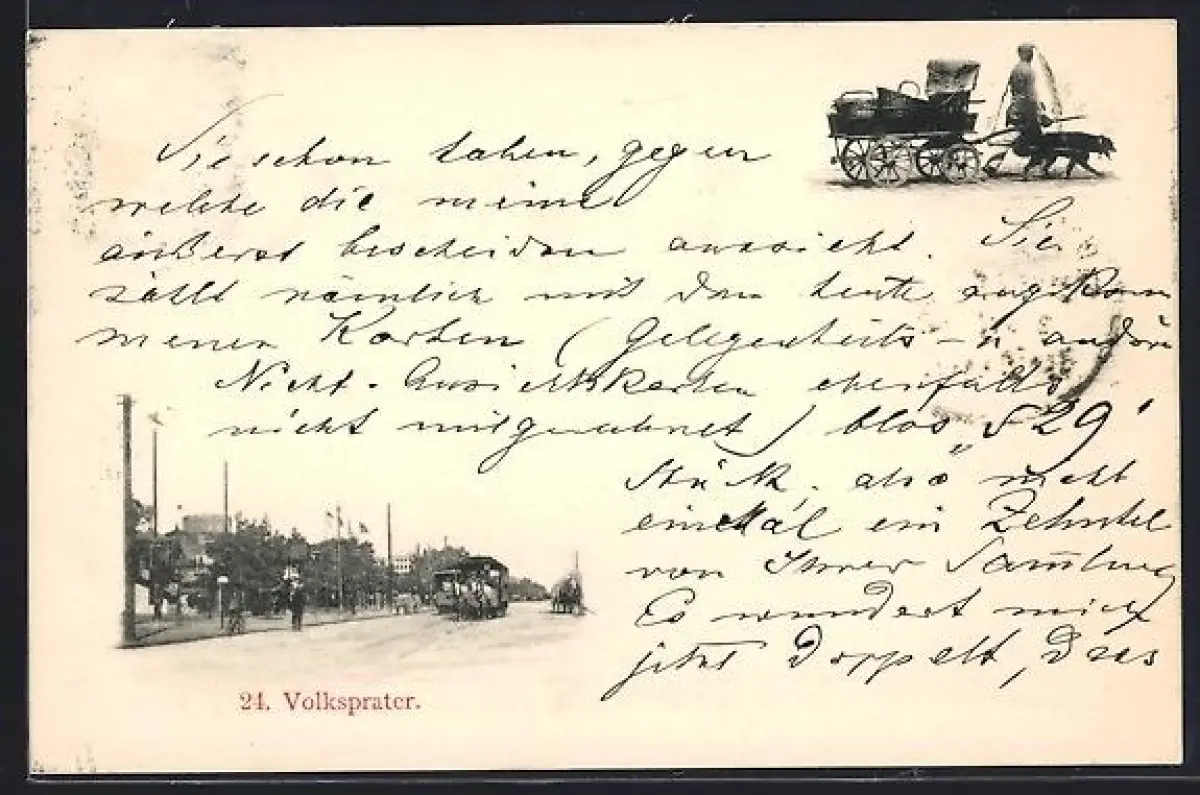 Sie schon haben, gegen
welche die meine
äußerst bescheiden aussieht. Sie
zählt nämlich mit den heute angekom
menen Karten (Gelegenheits- u andere
Nicht-Ansichtskarten ebenfalls
nicht mitgerechnet) blos „529“
Stück, also nicht
einmal ein Zehntel
von Ihrer Samlung
Es wundert mich
jetzt doppelt, dass
24. Volksprater.